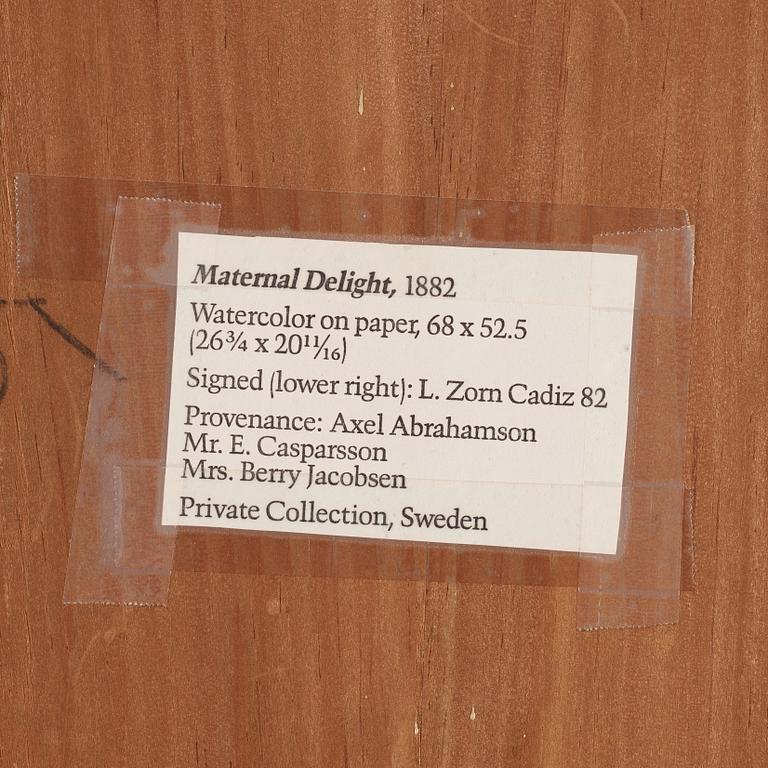 Maternal Delight, 1882
Watercolor on paper, 68 x 52.5
(26¾ x 20¹¹⁄₁₆)
Signed (lower right): L. Zorn Cadiz 82
Provenance: Axel Abrahamson
Mr. E. Casparsson
Mrs. Berry Jacobsen
Private Collection, Sweden